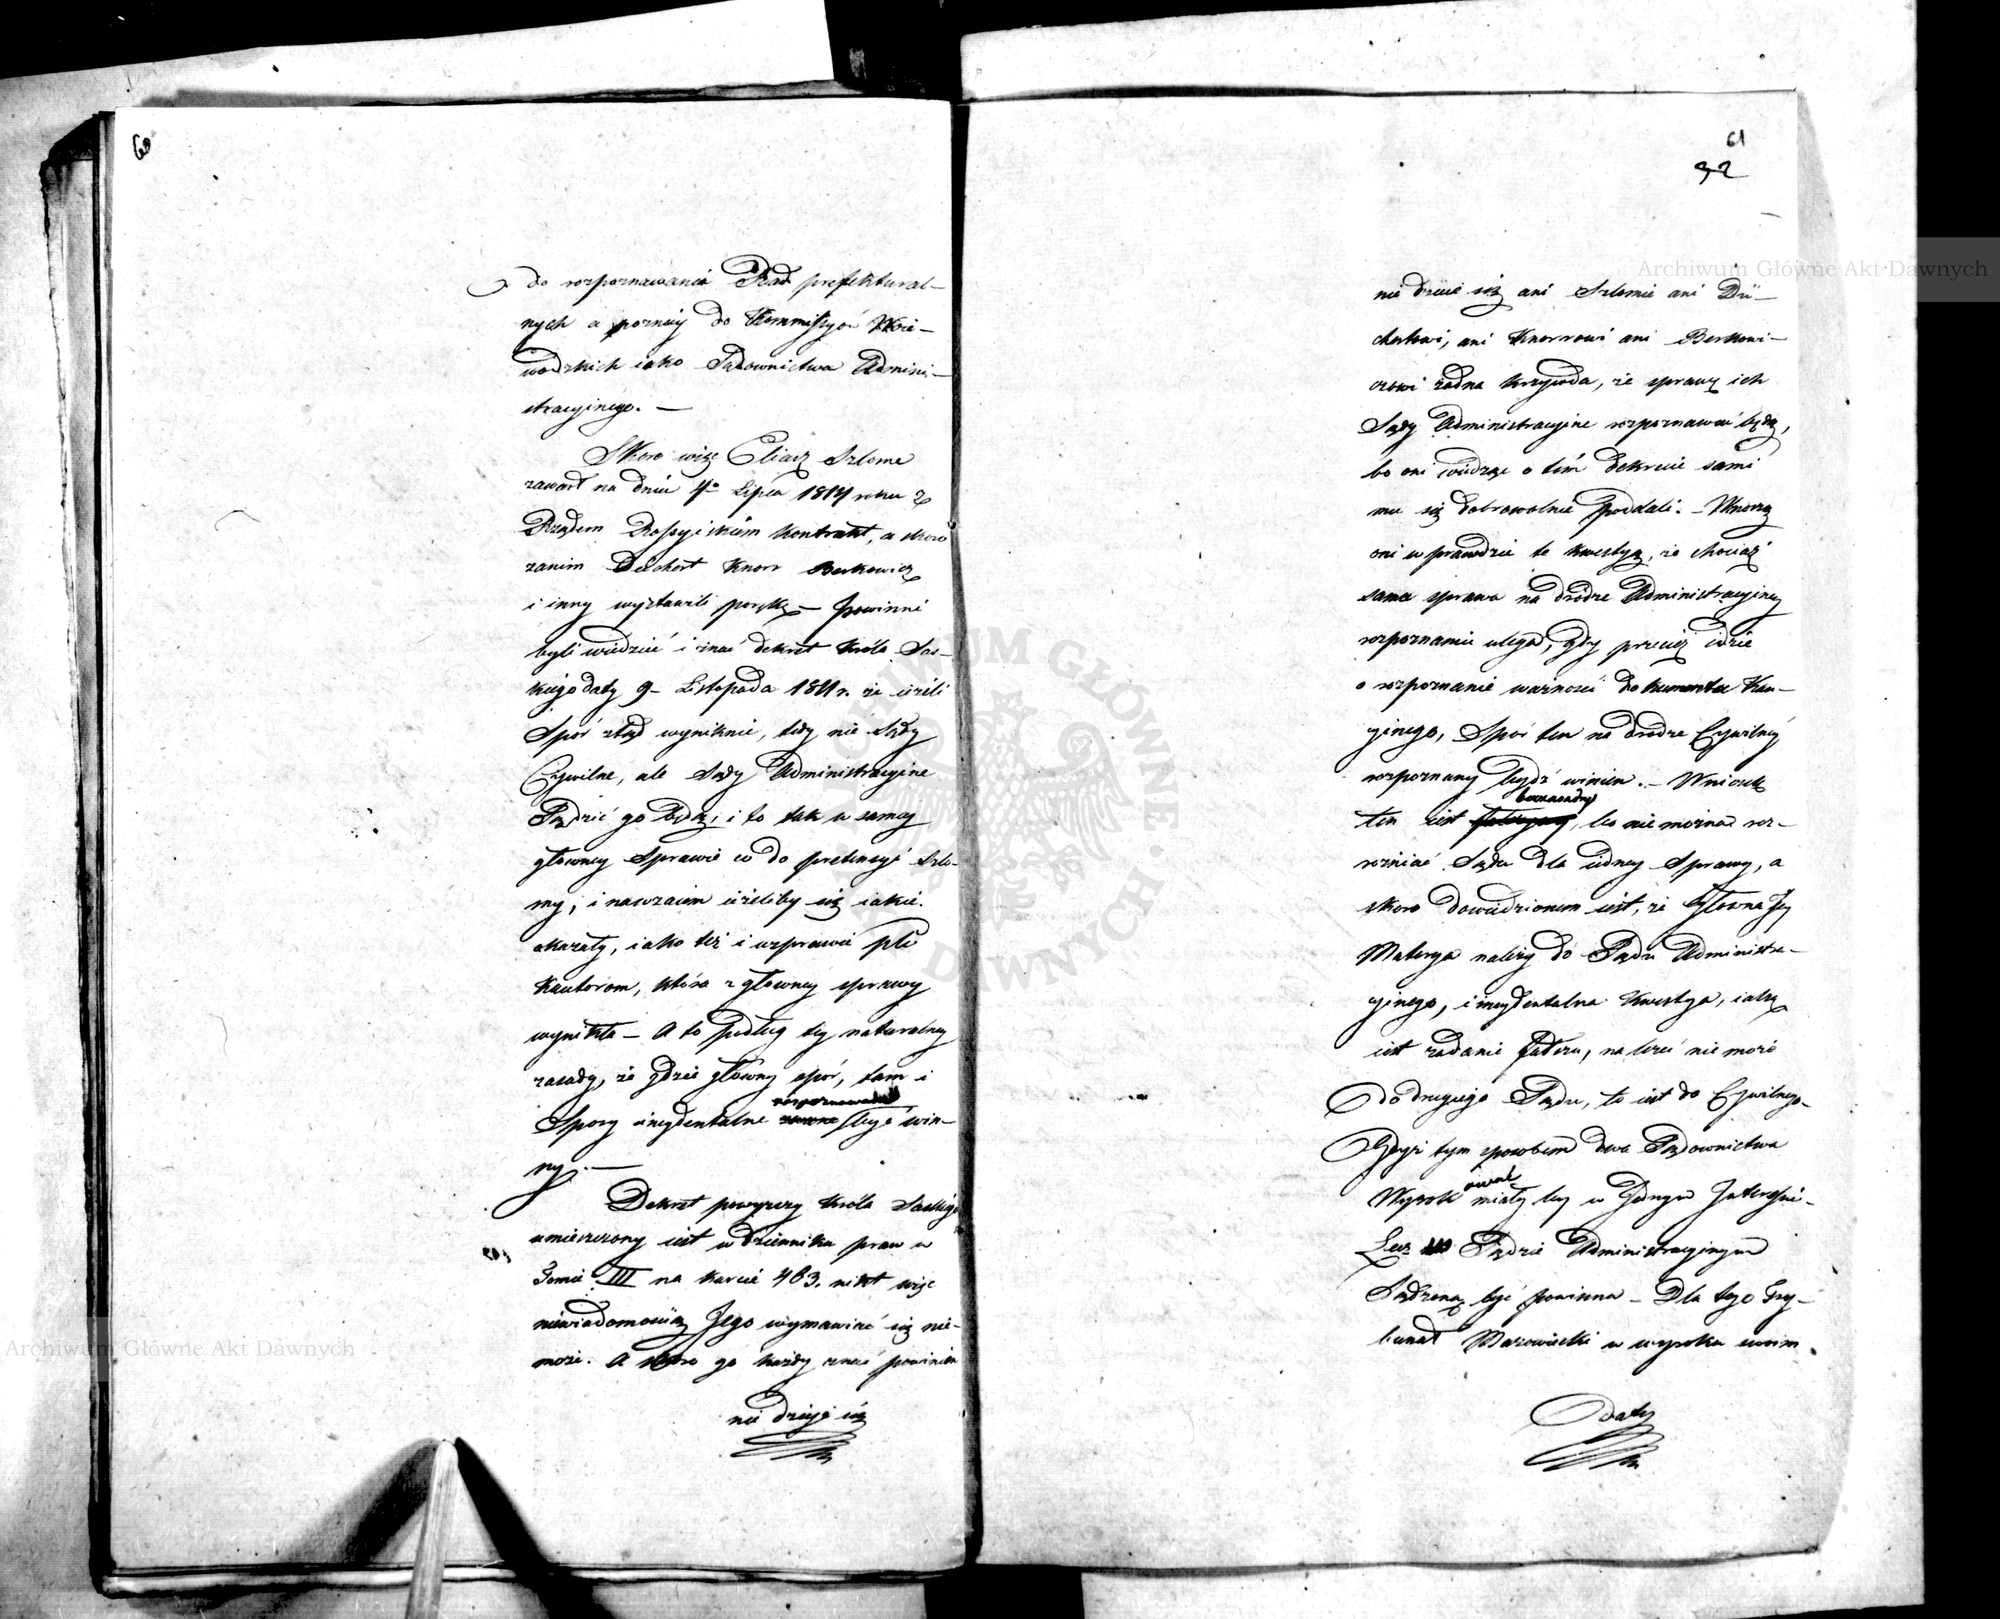 60
do rozpoznawania Rad prefektural-
nych a pozniey do Kommissyów Woie-
wodzkich iako Sądownictwa Admini-
stracyinego. —
Skoro więc Eliasz Szloma
zawarł na dniu 4º Lipca 1814 roku z
Rządem Rossyiskim Kontrakt, a skoro
zanim Deichert Knorr Berkowicz
i inny wystawili porękę — powinni
byli wiedzieć i znać dekret Króla Sas-
kiego daty 9 Listopada 1811 r. że ieżeli
Spór ztąd wyniknie, tedy nie Sądy
Cywilne, ale Sądy Administracyine
Sądzić go będą, i to tak w samey
główney Sprawie co do pretensyi Szlo-
my, i nawzaiem ieżeliby się iakie
okazały, iako też i wsprawie
Kautorom, która z główney sprawy
wynikła — A to podług tey naturalney
zasady, że gdzie główny spór, tam i
rozpoznawane
Spory incydentalne bydź win-
ny. —
Dekret powyższy Króla Saskiego
umieszczony iest w dzienniku praw w
Tomie III na karcie 463. nikt więc
niewiadomością Jego wymawiać się nie-
może. A skoro go każdy znać powinien
nie dzieie się
61
32
nie dzieie się ani Szlomie ani Dei-
chertowi, ani Knorrowi ani Berkowi-
czowi żadna krzywda, że sprawę ich
Sądy Administracyine rozpoznawać będą,
bo oni wiedząc o tém dekrecie sami
mu się dobrowolnie poddali. — Wnoszą
oni wprawdzie tę kwestyą, że chociaż
sama sprawa na drodze Administracyiney
rozpoznanie ulega, gdy przecież idzie
o rozpoznanie ważności dokumentu Kau-
cyinego, Spór ten na drodze Cywilnéy
rozpoznany bydź winien. — Wniosek
bezzasadny
ten iest , bo nie można roz-
rożniać Sądu dla iedney Sprawy, a
skoro dowiedzionem iest, że Główna Jey
Materya należy do Sądu Administra-
cyinego, i incydentalna Kwestya, iaką
iest żądanie , należeć nie może
do drugiego Sądu, to iest do Cywilnego
Gdyż tym sposobem dwa Sądownictwa
Wyrok miały by w Jednym Interessie.
Lecz Sądzie Administracyinym
Sądzoną być powinna — Dla tego Try-
bunał Mazowiecki w wyroku swoim
daty
Archiwum Główne Akt Dawnych
Archiwum Główne Akt Dawnych
ARCHIWUM GŁÓWNE AKT DAWNYCH